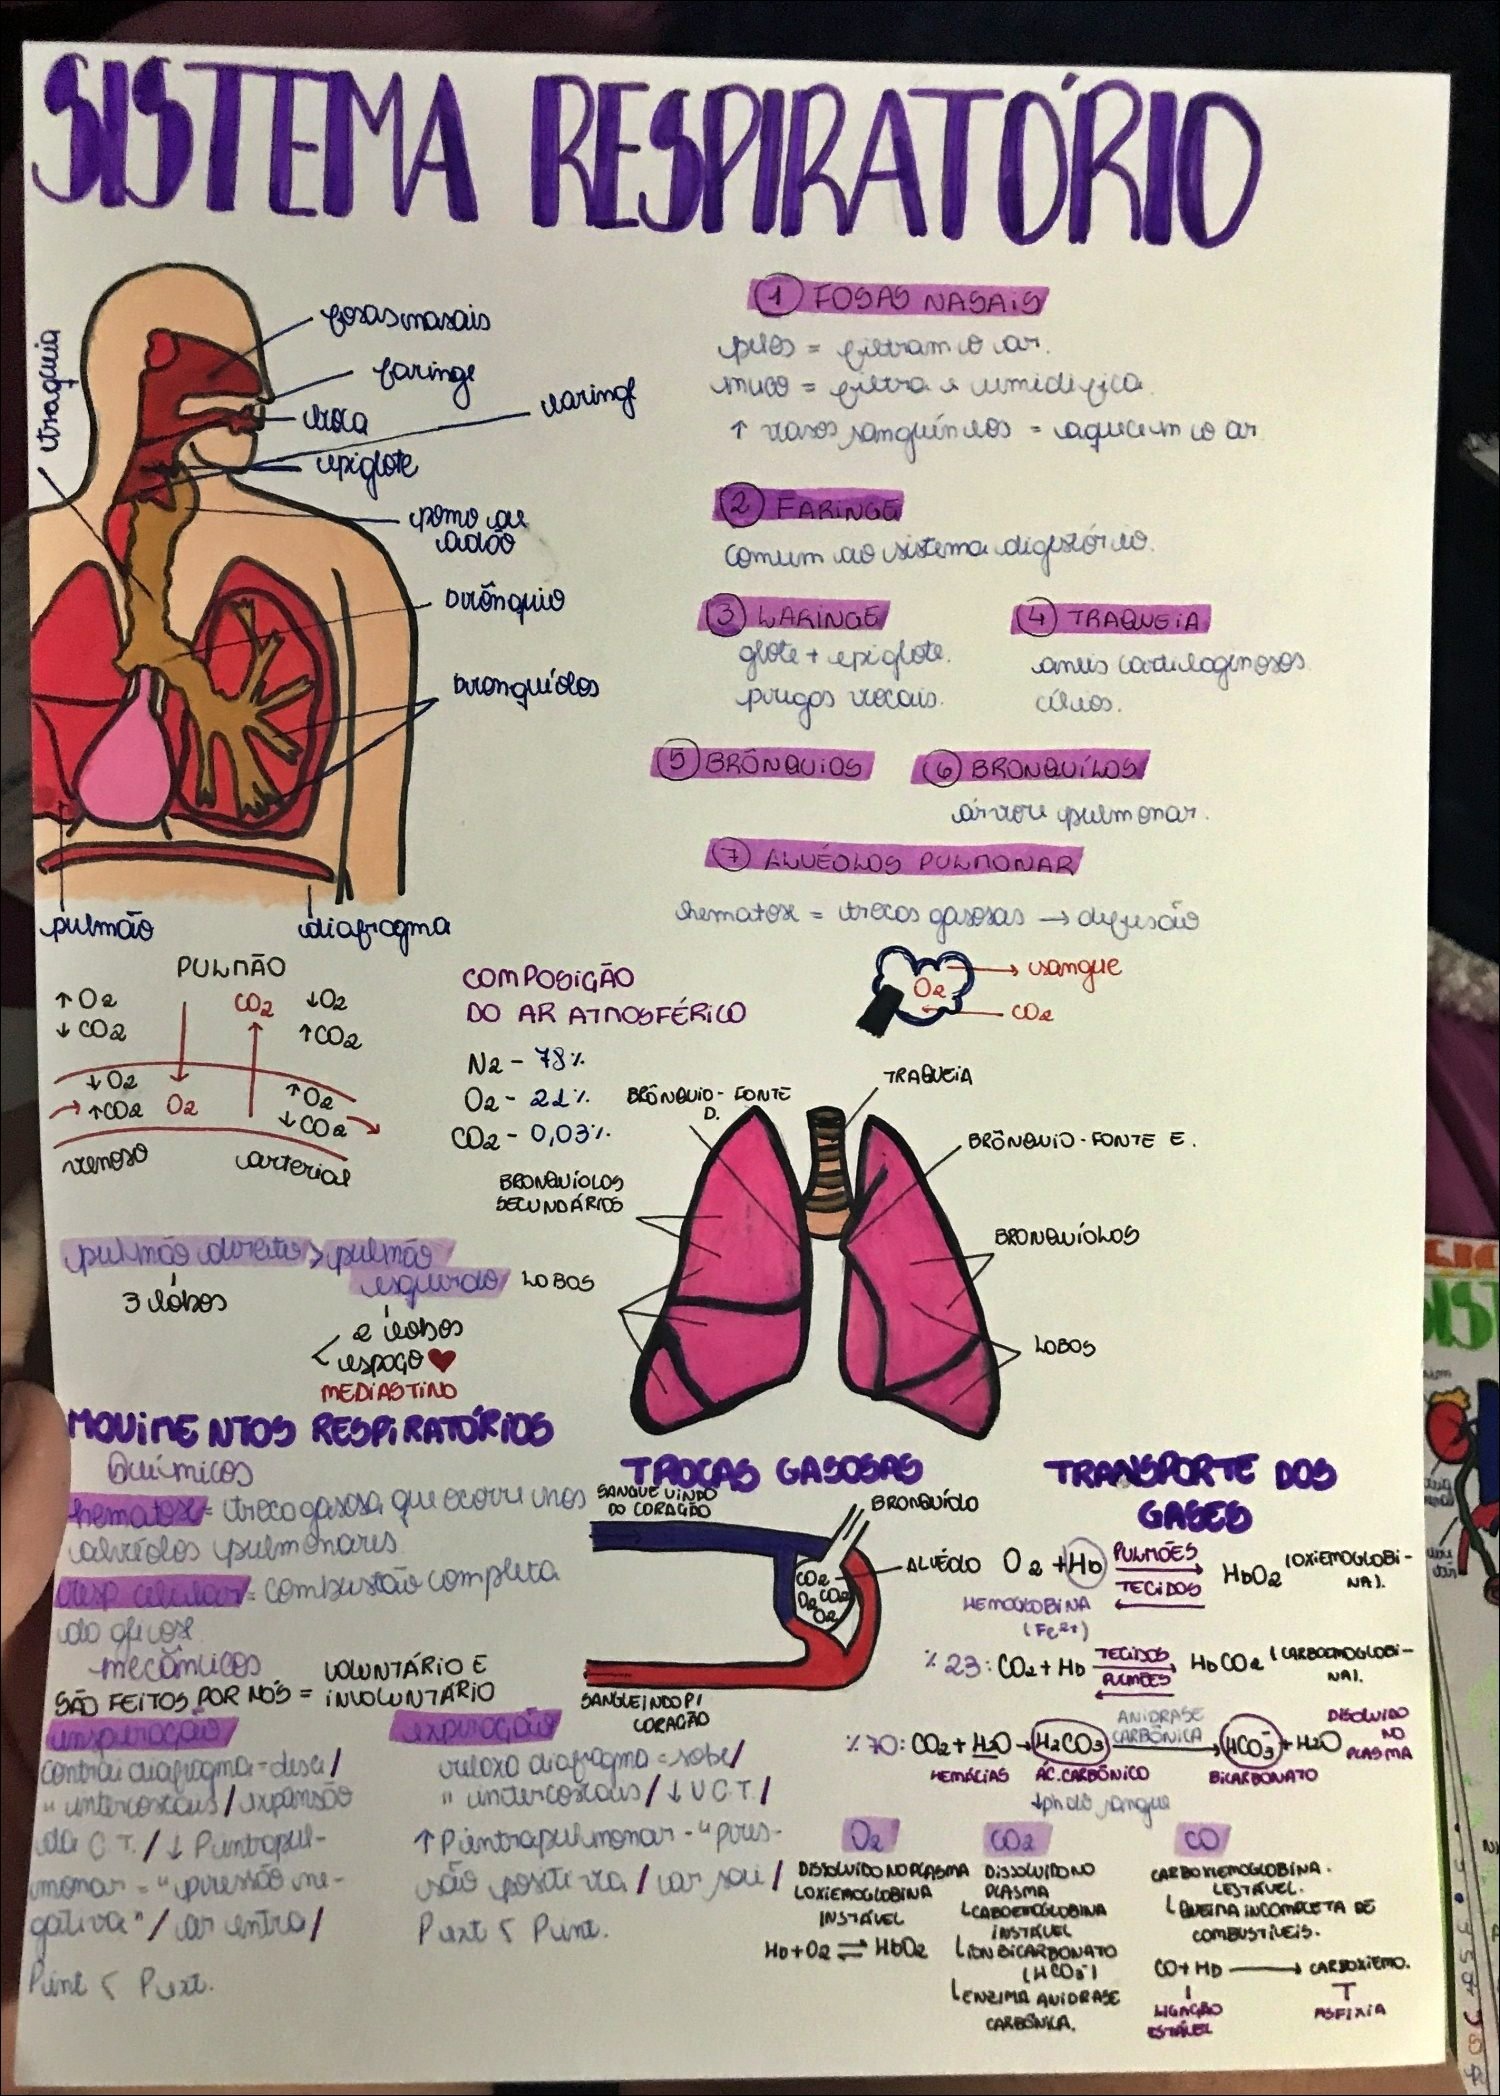 SISTEMA RESPIRATÓRIO
traquia
fosas nasais
faringe
boca
laringe
epiglote
pomo de
adão
brônquio
bronquíolos
pulmão
diafragma
1 FOSAS NASAIS
pelos = filtram o ar.
muco = filtra e umidifica.
↑ vasos sanguíneos = aquecem o ar
2 FARINGE
comum ao sistema digestório.
3 LARINGE
glote + epiglote.
pregas vocais.
4 TRAQUEIA
aneis cartilaginosos.
cílios.
5 BRÔNQUIOS
6 BRONQUÍLOS
árvore pulmonar.
7 ALVÉOLOS PULMONAR
hematose = trocas gasosas → difusão
O2
sangue
CO2
PULMÃO
↑ O2
↓ CO2
CO2
↓O2
↑CO2
↓ O2
→ ↑CO2 O2
↑O2
↓CO2
venoso
arterial
COMPOSIÇÃO
DO AR ATMOSFÉRICO
N2 - 78%
O2 - 21%
CO2 - 0,03%
BRÔNQUIO - FONTE
D.
TRAQUEIA
BRÔNQUIO - FONTE E.
BRONQUÍOLOS
SECUNDÁRIOS
BRONQUÍOLOS
LOBOS
LOBOS
pulmão direito > pulmão
esquerdo
3 lóbos
2 lobos
espaço ♥
MEDIASTINO
MOVIMENTOS RESPIRATÓRIOS
Químicos
hematose = troca gasosa que ocorre nos
alvéolos pulmonares.
resp celular = combustão completa
da glicose.
mecânicos
SÃO FEITOS POR NÓS = VOLUNTÁRIO E
INVOLUNTÁRIO
inspiração
contrai diafragma = desce /
" intercostais / expansão
da C.T. / ↓ P intrapul-
monar = "pressão ne-
gativa" / ar entra /
Pint < Pext.
expiração
relaxa diafragma = sobe /
" intercostais / ↓ V C.T. /
↑ P intrapulmonar - "pres-
são positiva / ar sai /
Pext < Pint.
TROCAS GASOSAS
SANGUE VINDO
DO CORAÇÃO
BRONQUÍOLO
ALVÉOLO
CO2
O2 CO2
O2
SANGUE INDO P/
CORAÇÃO
TRANSPORTE DOS
GASES
O2 + Hb PULMÕES HbO2 (OXIEMOGLOBI-
NA).
TECIDOS
HEMOGLOBINA
(Fe2+)
% 23: CO2 + Hb TECIDOS HbCO2 (CARBOEMOGLOBI-
NA).
PULMÕES
% 70: CO2 + H2O → H2CO3 ANIDRASE
CARBÔNICA → HCO3- + H2O
DISOLVIDO
NO
PLASMA
HEMÁCIAS ÁC. CARBÔNICO BICARBONATO
↓ph do sangue
O2
DISSOLVIDO NO PLASMA
LOXIEMOGLOBINA
INSTÁVEL
Hb + O2 ⇌ HbO2
CO2
DISSOLVIDO NO
PLASMA
LCABOEMOGLOBINA
INSTÁVEL
LION BICARBONATO
(HCO3-)
LENZIMA ANIDRASE
CARBÔNICA.
CO
CARBOXIEMOGLOBINA.
LESTÁVEL.
LQUEIMA INCOMPLETA DE
COMBUSTÍVEIS.
CO + Hb → CARBOXIEMO.
LIGAÇÃO
ESTÁVEL
ASFIXIA